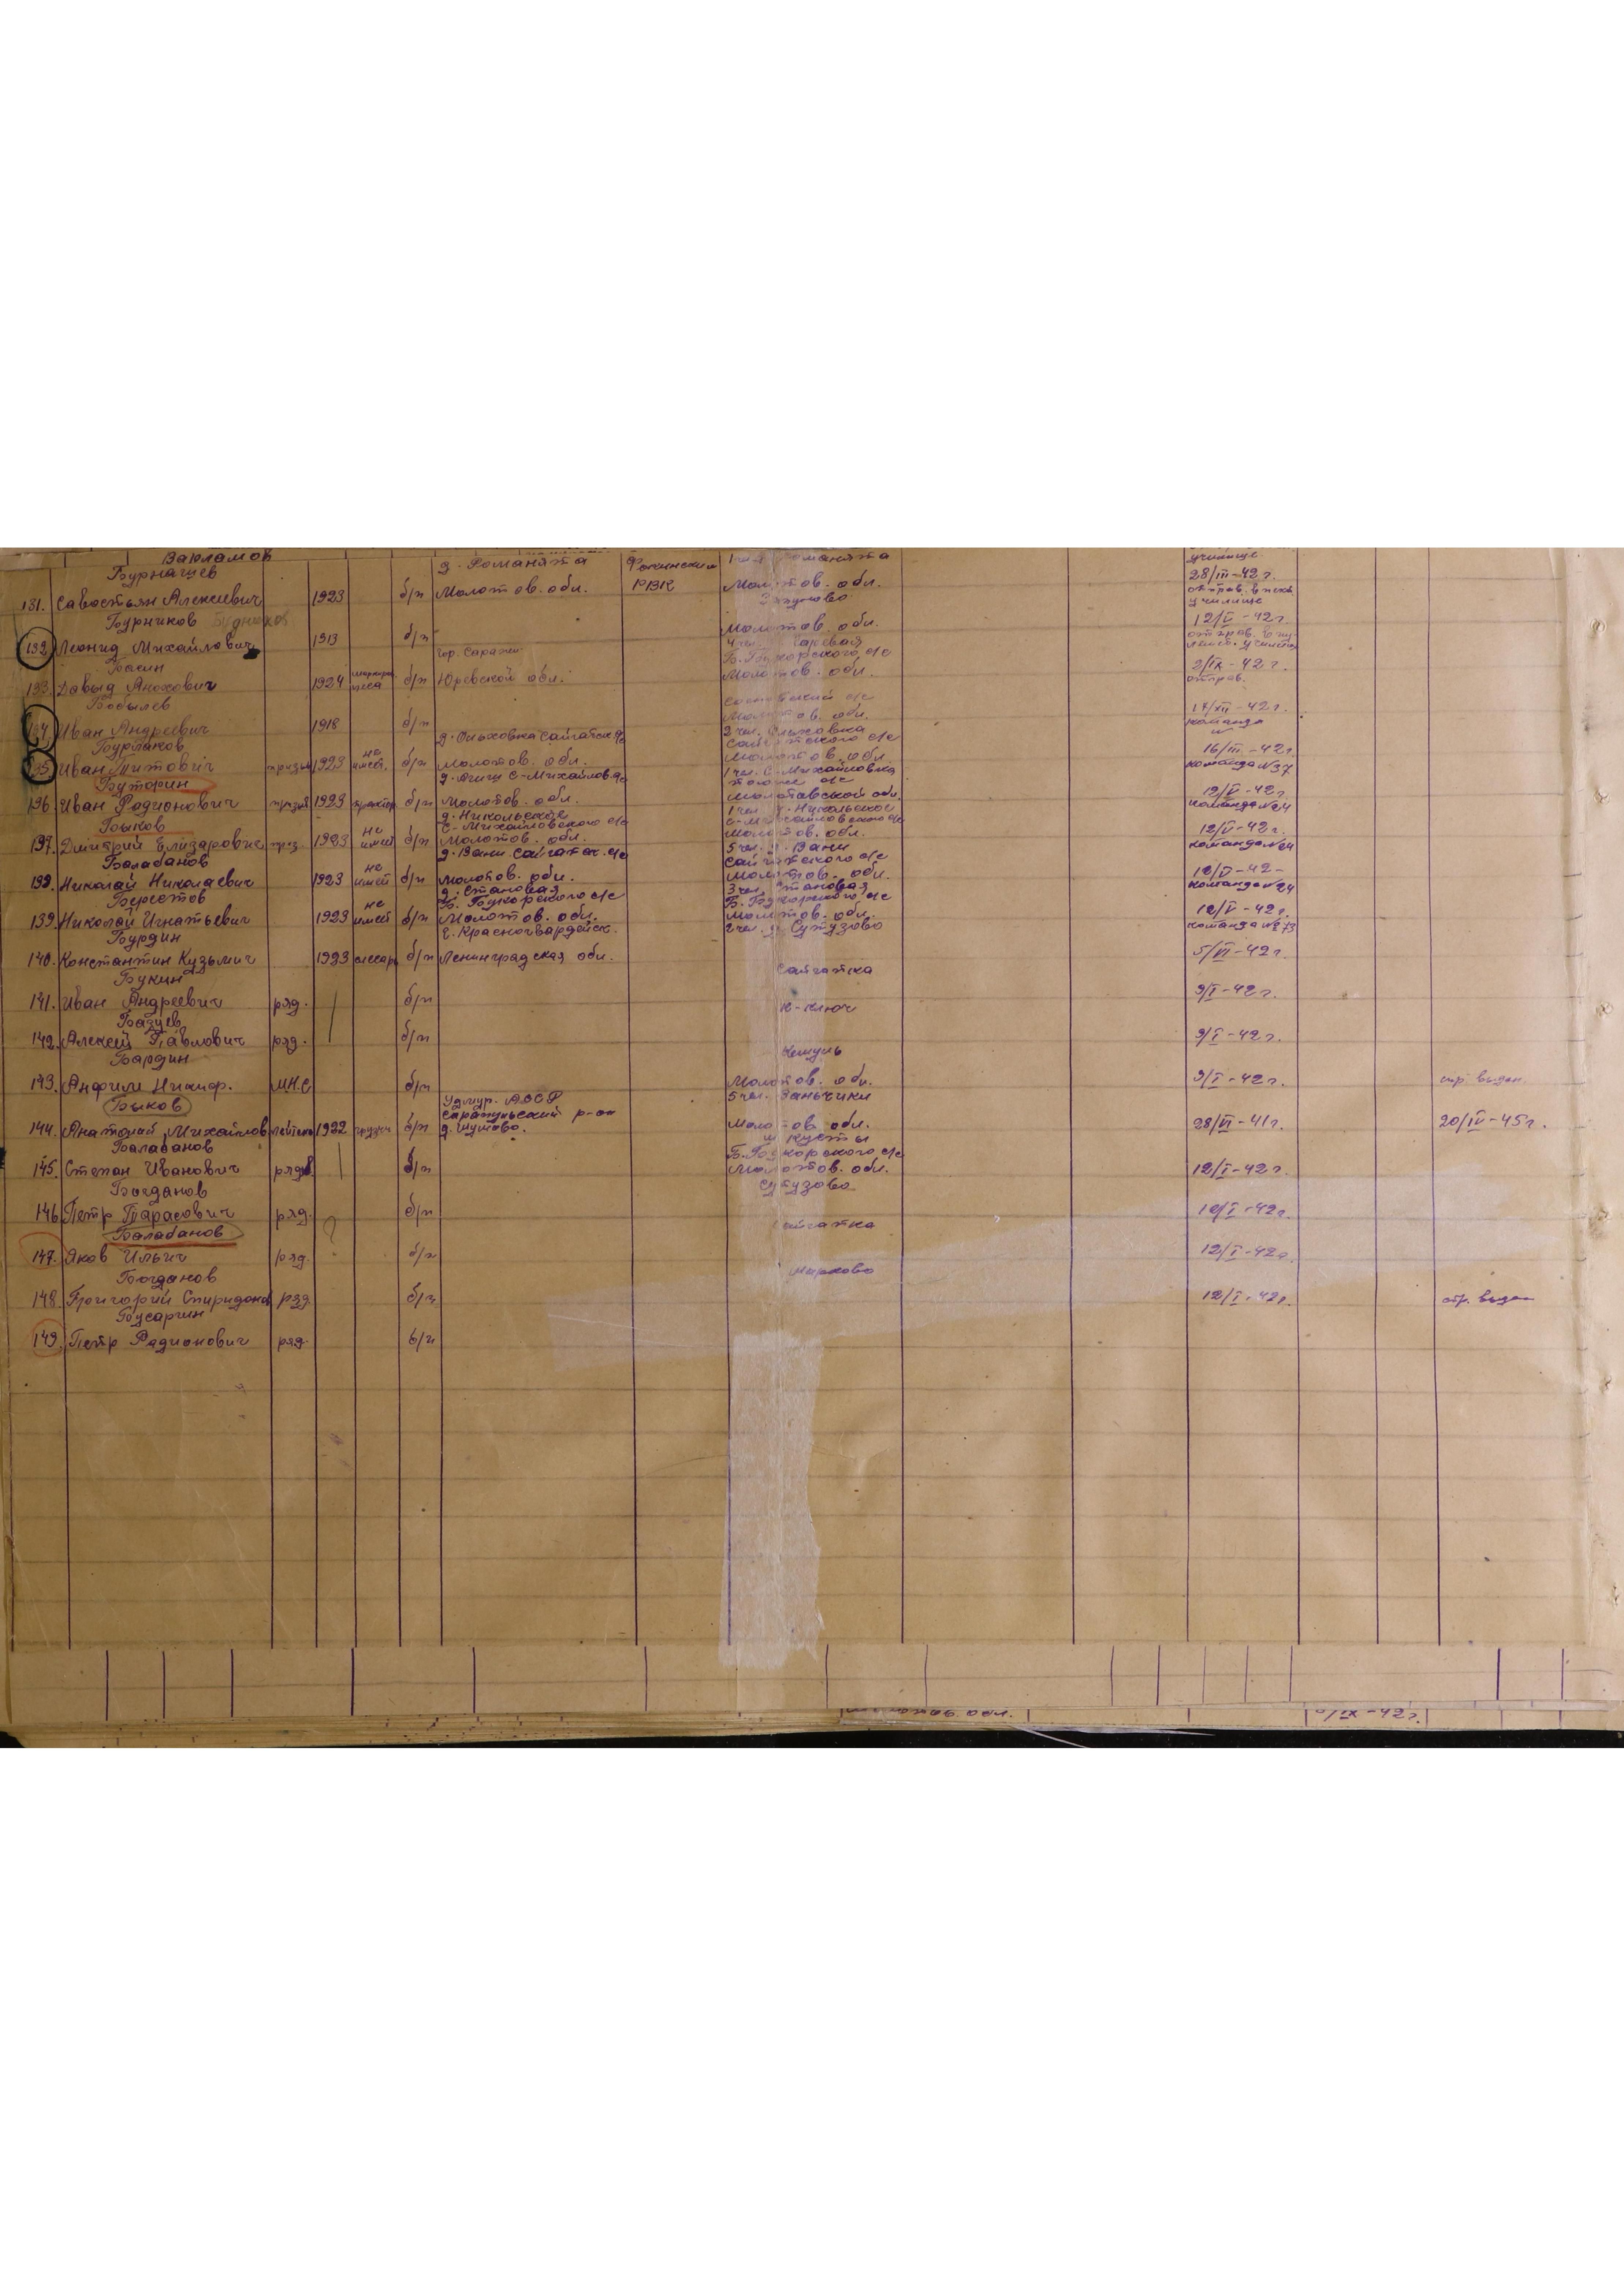 Варламов
д. Романята
Фокинский
училище
Бурнашев
РВК
28/III-42 г.
131. Савостьян Алексиевич 1923 б/п Молотов. обл. Молотов. обл.
училище
Бурников
12/V-42 г.
132. Леонид Михайлович 1913 б/п Молотов. обл.
Гор. Б. Букорского с/с
Басин
2/IX-42 г.
133. Давыд 1924 б/п обл. Молотов. обл. отправ.
Бобылев
17/XII-42 г.
134. Иван Андреевич 1918 б/п Молотов. обл. команда
д. Ольховка Сайгатск. с/с 2 чел. Ольховка
Бурлаков Сайгатского с/с 16/III-42 г.
135. Иван Титович 1923 не имеет. б/п Молотов. обл. Молотов. обл. команда №37
С-Михайлов. с/с 1 чел. С-Михайловка
Буторин 12/V-42 г.
136. Иван Родионович 1923 трактор б/п Молотов. обл. Молотовской обл. команда №24
д. Никольское 1 чел. д. Никольское
Быков С-Михайловского с/с С-Михайловского с/с 12/V-42 г.
137. Дмитрий Елизарович 1923 не имеет б/п Молотов. обл. Молотов. обл. команда №24
д. Вани Сайгатск. с/с 5 чел. д. Вани
Балабанов Сайгатского с/с 12/V-42-
138. Николай Николаевич 1923 не имеет б/п Молотов. обл. Молотов. обл. команда №24
д. Становая 3 чел. Становая
Берестов Б. Букорского с/с Б. Букорского с/с 12/V-42 г.
139. Николай Игнатьевич 1923 не имеет б/п Молотов. обл. Молотов. обл. команда №273
Бурдин г. Красногвардейск. 2 чел. д. Сутузово
140. Константин Кузьмич 1923 слесарь б/п Ленинградская обл. 5/VI-42 г.
Букин Сайгатка
141. Иван Андреевич ряд. б/п 9/I-42 г.
Базуев К-Ключ
142. Алексей Павлович ряд. б/п 9/I-42 г.
Бардин Кемуль
143. Анфим Никиф. М.Н.С б/п Молотов. обл. 9/I-42 г.
Быков Удмур. АССР 5 чел. Заньчики
Сарапульский р-он
144. Анатолий Михайлов 1922 б/п д. Шутово. Молотов. обл. 28/VI-41 г. 20/IV-45 г.
Балабанов Кусты
Б. Букорского с/с
145. Степан Иванович рядов. б/п Молотов. обл. 12/I-42 г.
Богданов Сутузово
146. Петр Тарасович ряд. б/п 12/I-42 г.
Балабанов Сайгатка
147. Яков Ильич ряд. б/п 12/I-42 г.
Богданов Марково
148. Григорий Спиридонов ряд. б/п 12/I-42 г.
Бусаргин
149. Петр Радионович ряд. б/п
обл.
/IX-42 г.